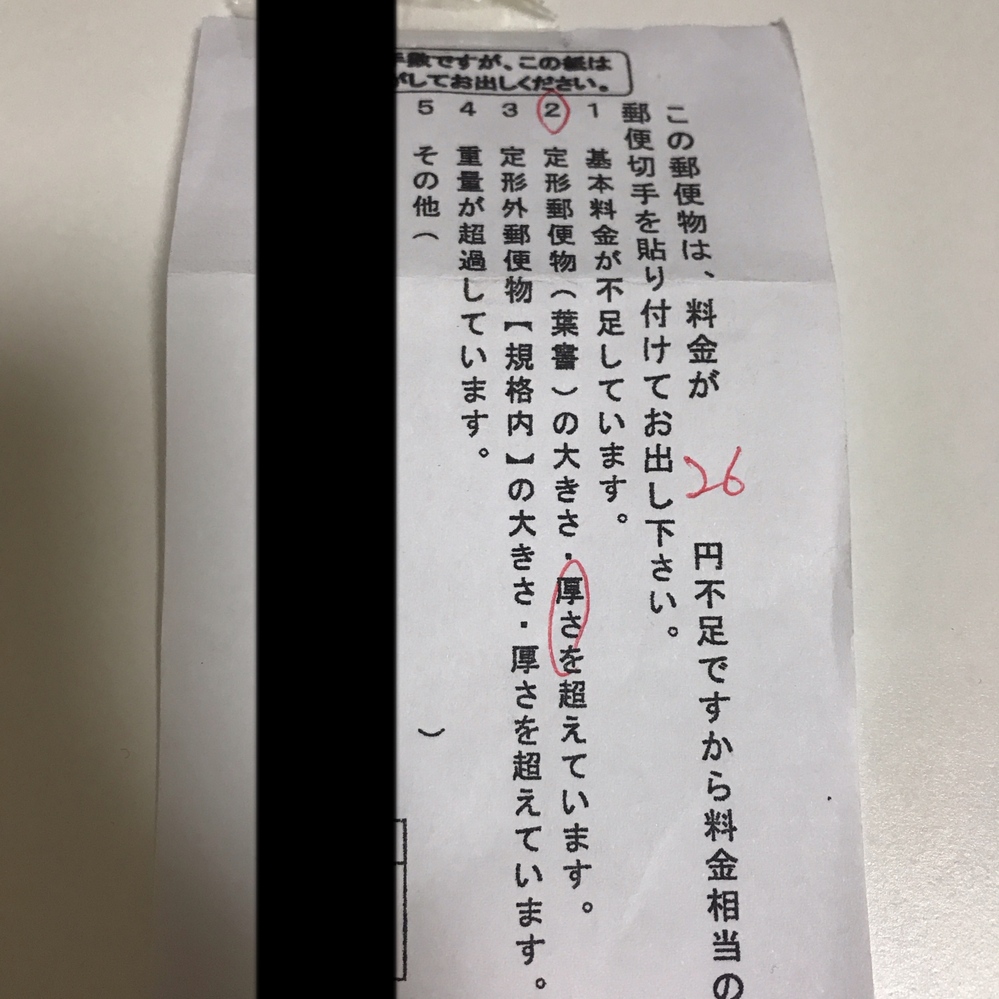 この郵便物は、料金が 26 円不足ですから料金相当の
郵便切手を貼り付けてお出し下さい。
1 基本料金が不足しています。
2 定形郵便物(葉書)の大きさ・厚さを超えています。
3 定形外郵便物【規格内】の大きさ・厚さを超えています。
4 重量が超過しています。
5 その他( )
手数ですが、この紙は
がしてお出しください。